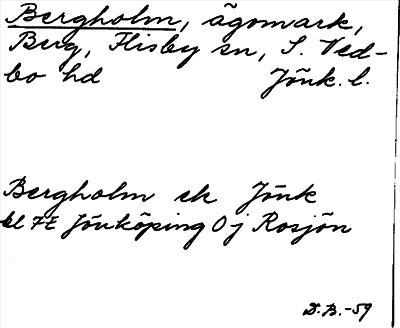 Bergholm, ägomark,
Berg, Flisby sn, S. Ved-
bo hd Jönk. l.
Bergholm ek Jönk
bl 7E Jönköping Oj Rosjön
D.B.-59